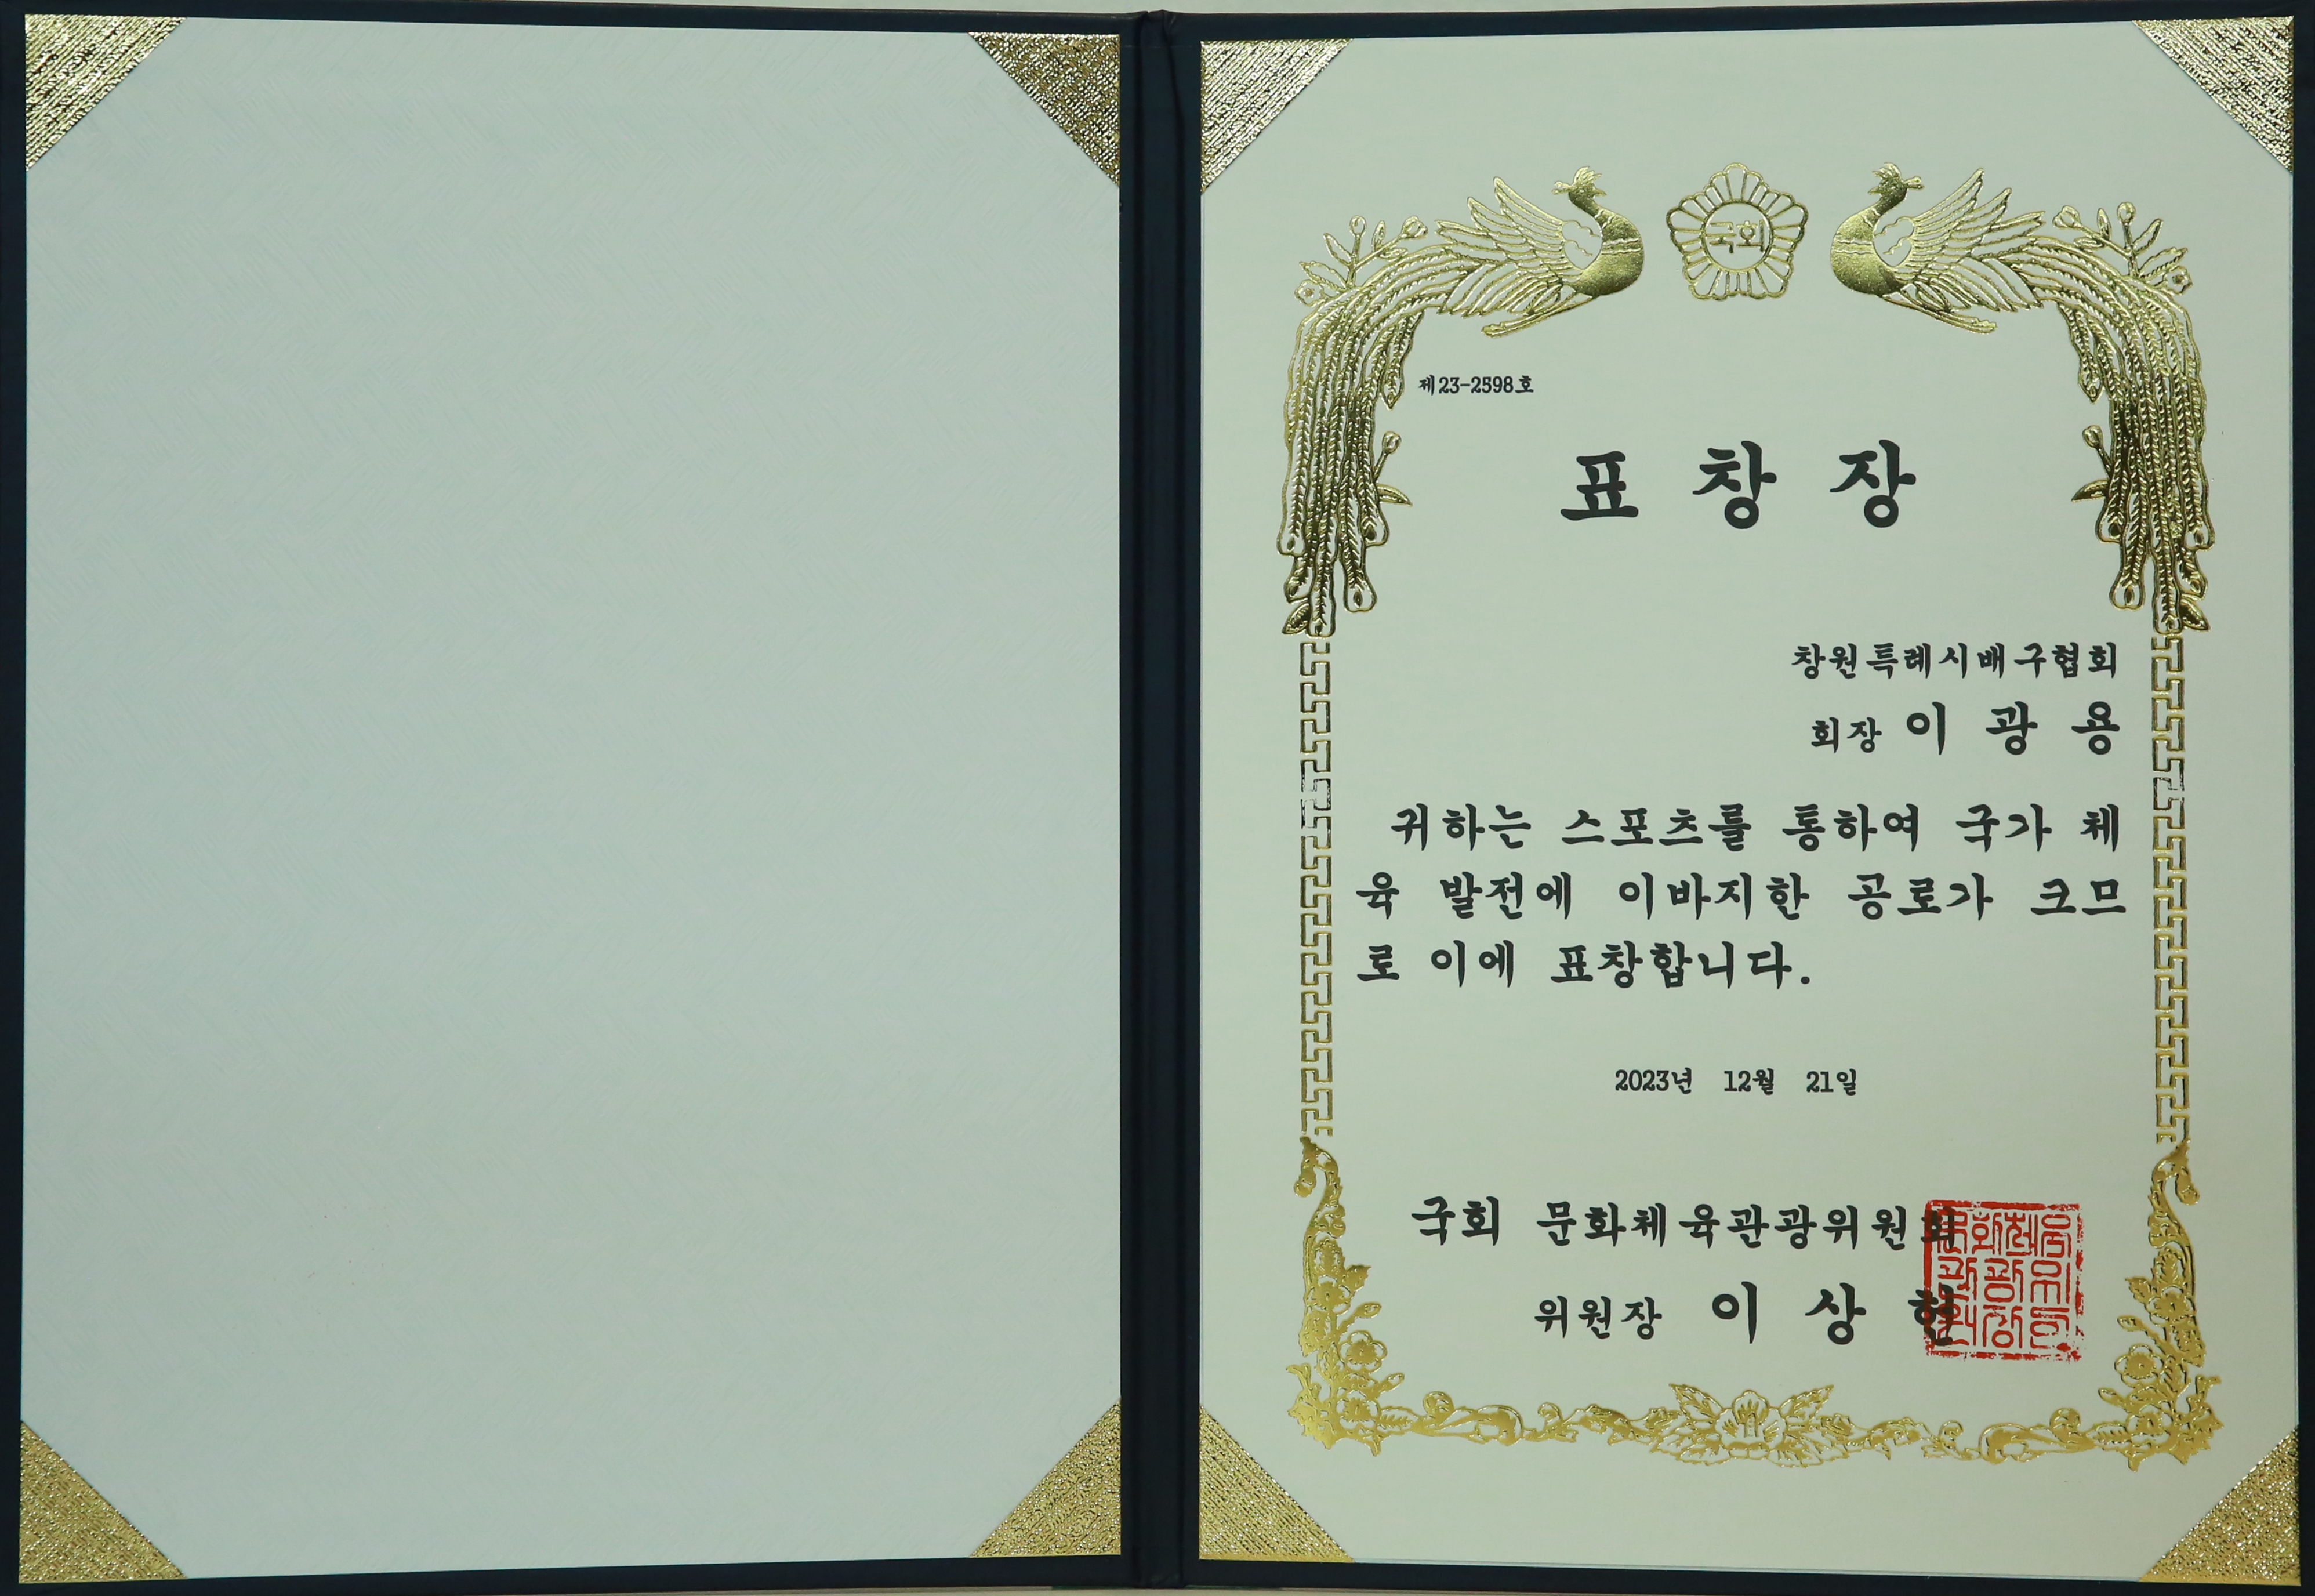 국회
제23-2598호
표 창 장
창원특례시배구협회
회장 이 광 용
귀하는 스포츠를 통하여 국가 체
육 발전에 이바지한 공로가 크므
로 이에 표창합니다.
2023년 12월 21일
국회 문화체육관광위원회
위원장 이 상 헌